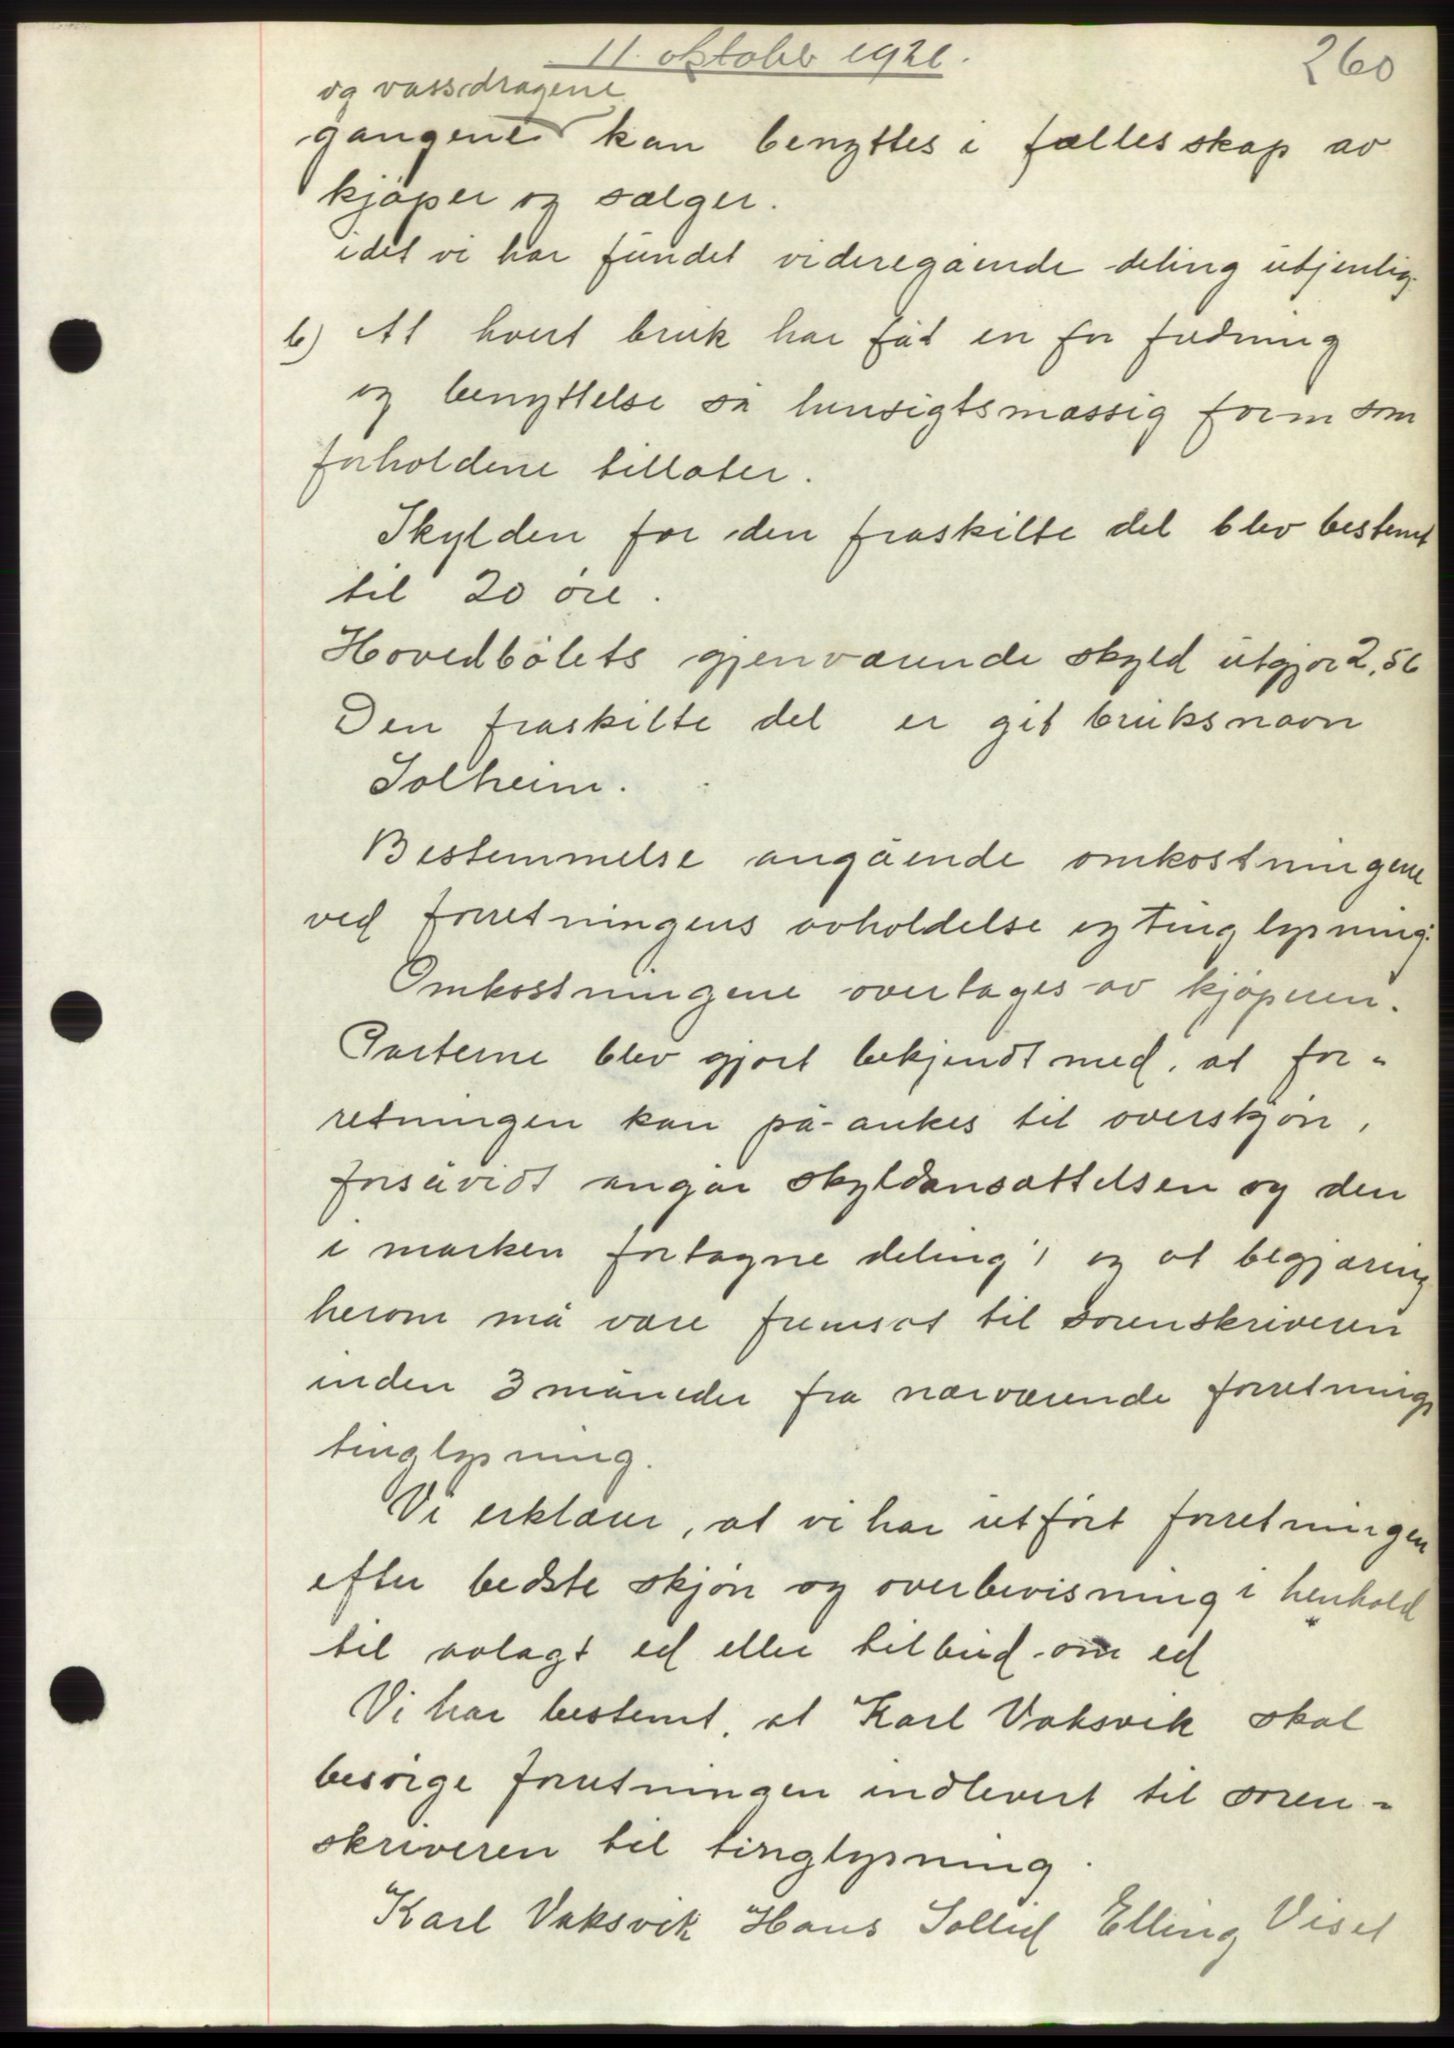 11. oktober 1921.
260
og vassdragene
gangene kan benyttes i fælles skap av
kjøper og sælger.
idet vi har fundet videregående deling utjenlig.
b) At hvert bruk har fåt en for fredning
og benyttelse så hensigtsmæssig form som
forholdene tillater.
Skylden for den fraskilte del blev bestemt
til 20 øre.
Hovedbølets gjenværende skyld utgjør 2,56
Den fraskilte del er git bruksnavn
Solheim.
Bestemmelse angående omkostningene
ved forretningens avholdelse og tinglysning:
Omkostningene overtages av kjøperen.
Parterne blev gjort bekjendt med, at for-
retningen kan på-ankes til overskjøn,
forsåvidt angår skyldansættelsen og den
i marken fortagne deling, og at begjæring
herom må være fremsat til sorenskriveren
inden 3 måneder fra nærværende forretnings
tinglysning.
Vi erklærer, at vi har utført forretningen
efter bedste skjøn og overbevisning i henhold
til avlagt ed eller tilbud om ed
Vi har bestemt, at Karl Vaksvik skal
besørge forretningen indlevert til soren-
skriveren til tinglysning.
Karl Vaksvik Hans Sollid Elling Viset